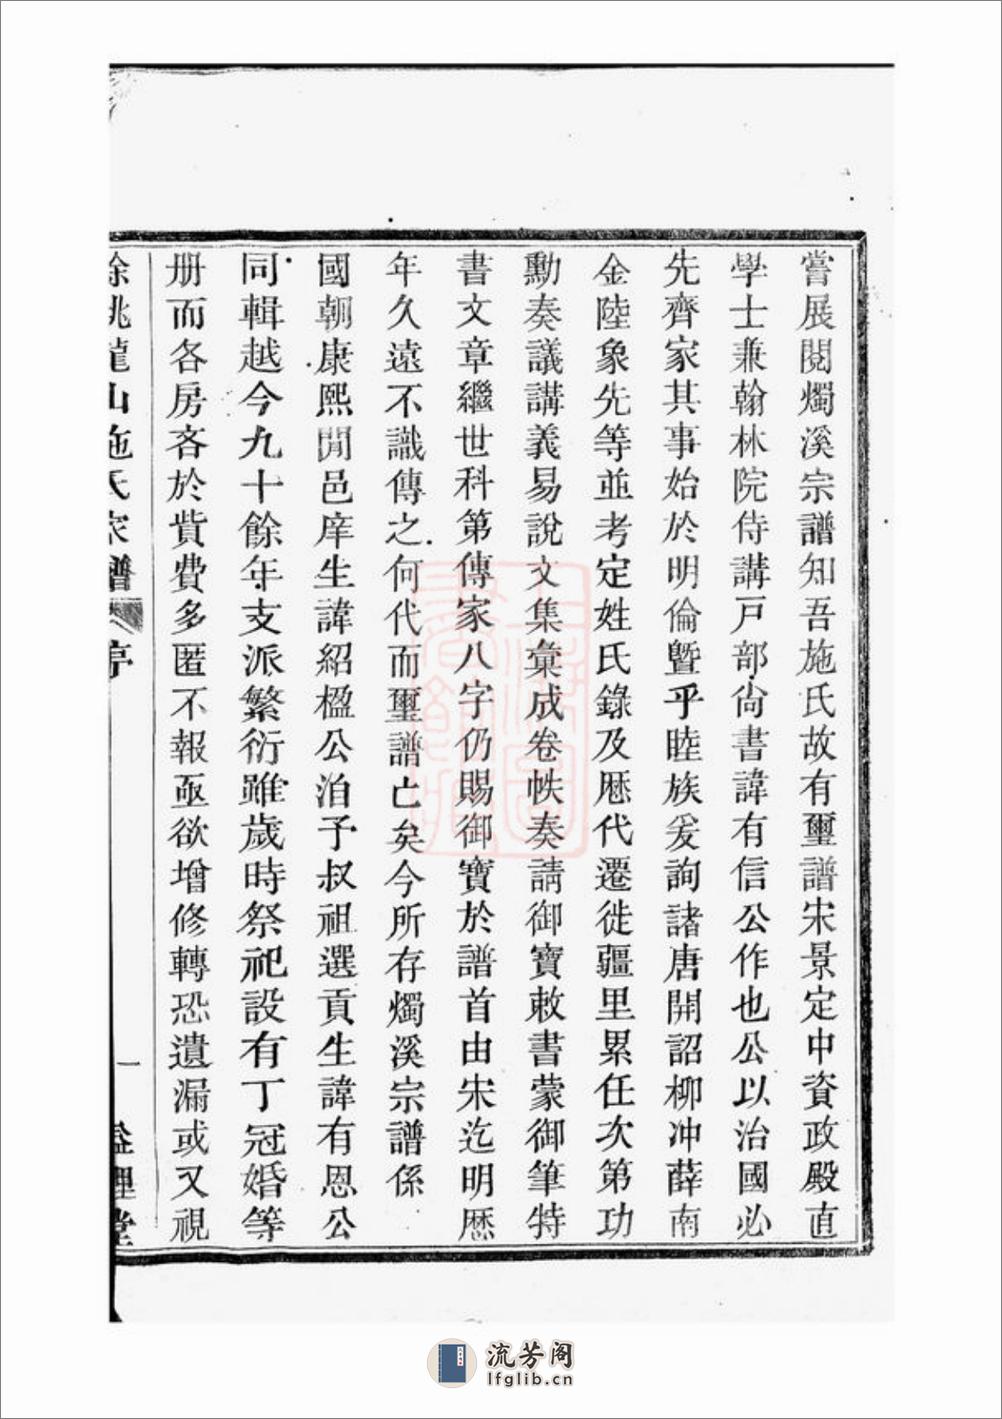 嘗展閱燭溪宗譜知吾施氏故有璽譜宋景定中資政殿直
學士兼翰林院侍講戸部尙書諱有信公作也公以治國必
先齊家其事始於明倫曁乎睦族爰詢諸唐開詔柳冲薛南
金陸象先等並考定姓氏錄及厯代遷徙疆里累任次第功
勳奏議講義易說文集彙成卷帙奏請御寶敕書蒙御筆特
書文章繼世科第傳家八字仍賜御寶於譜首由宋迄明厯
年久遠不識傳之何代而璽譜亡矣今所存燭溪宗譜係
國朝康熙閒邑庠生諱紹楹公洎予叔祖選貢生諱有恩公
同輯越今九十餘年支派繁衍雖歲時祭祀設有丁冠婚等
册而各房吝於貲費多匿不報亟欲增修轉恐遺漏或又視
餘姚龍山施氏宗譜 序 一 益理堂
流芳阁
lfglib.cn